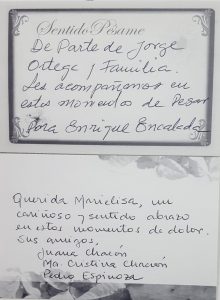 Sentido Pésame
De Parte de Jorge
Ortega y Familia.
Les acompañamos en
estos momentos de Pesar
Para Enrique Encalada
Querida Marielisa, un
cariñoso y sentido abrazo
en estos momentos de dolor.
Sus amigos,
Juana Chacón
Ma. Cristina Chacón
Pedro Espinoza